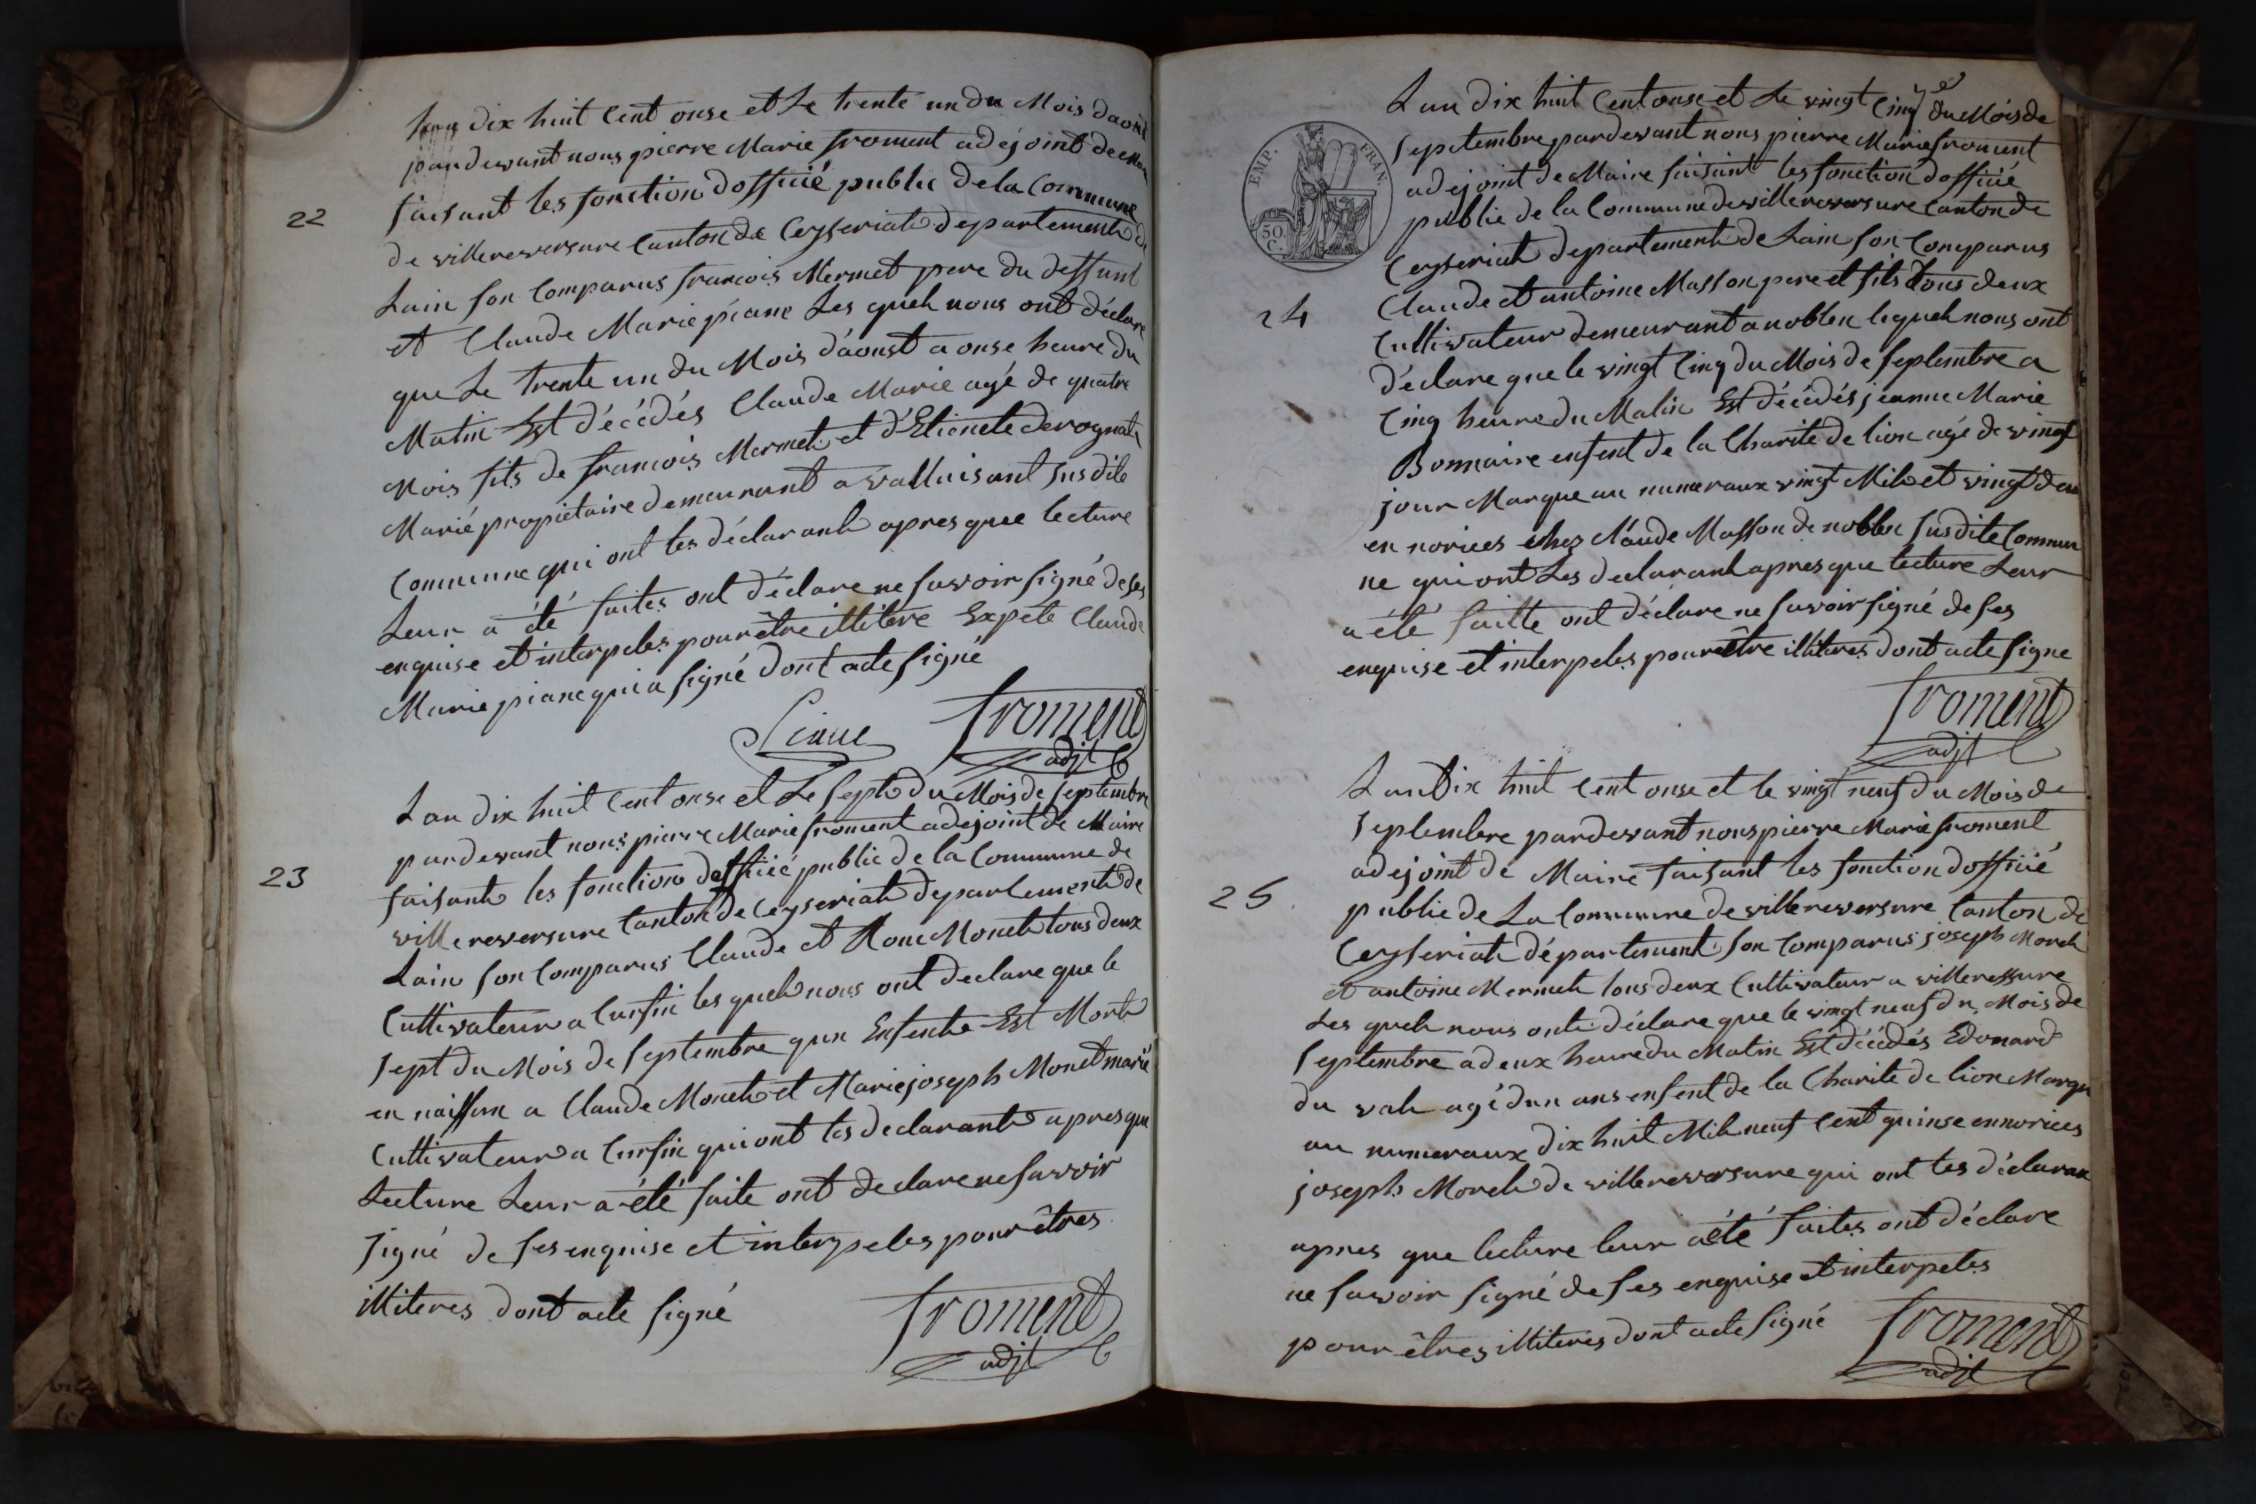 Lan dix huit Cent onse et Le trente un du Mois daoust
pardevant nous pierre Marie froment adejoint de Maire
22
faisant les fonction dofficié public de la Commune
de villereversure Canton de Ceyseriat departement de
Lain son Comparus francois Mermet pere du deffunt
et Claude Marie piane Les quels nous ont déclare
que Le trente un du Mois d'aoust a onse heure du
Matin Est décédés Claude Marie agé de quatre
Mois fils de francois Mermet et d'Etienete
Marié propietaire demeurant a valluisant Susdite
Commune qui ont les déclarant apres que lecture
Leur a été faites ont déclare ne savoir signé de ses
enquise et interpeles pour être illitere Expete Claude
Marie piane qui a signé dont acte signé
Piane froment
adjt
Lan dix huit Cent onse et Le Sept du Mois de Septembre
pardevant nous pierre Marie froment adejoint de Maire
23
faisant les fonction dofficié public de la Commune de
villereversure Canton de Ceyseriat departement de
Lain son Comparus Claude et Monet tous deux
Cultivateur a Cursin les quels nous ont declare que le
Sept du Mois de Septembre qun Enfent Est Mort
en naissan a Claude Monet et Marie joseph Monet marié
Cultivateur a Cursin qui ont les declarant apres que
Lecture Leur a été faite ont declare ne savoir
signé de ses enquise et interpeles pour êtres
illiteres dont acte signé
froment
adjt
Lan dix huit Cent onse et Le vingt Cinq du Mois de
Septembre pardevant nous pierre Marie froment
adejoint de Maire faisant les fonction dofficié
EMP. FRAN.
50 C.
public de la Commune de villereversure Canton de
Ceyseriat departement de Lain son Comparus
24
Claude et antoine Masson pere et fils tous deux
Cultivateur demeurant a noblen lequels nous ont
déclare que le vingt Cinq du Mois de Septembre a
Cinq heure du Matin Est décédés jeanne Marie
Bonnaire enfent de la Charite de lion agé de vingt
jour Marque au numeraux vingt Mil et vingt deu
en norices chez Claude Masson de noblen Susdite Commun
ne qui ont Les declarant apres que lecture Leur
a été faitte ont déclare ne savoir signé de ses
enquise et interpeles pour être illiteres dont acte signe
froment
adjt
Lan Dix huit Cent onse et le vingt neuf du Mois de
Septembre pardevant nous pierre Marie froment
adejoint de Maire faisant les fonction dofficié
25
public de La Commune de villereversure Canton de
Ceyseriat département son Comparus joseph Morel
et antoine Mermet tous deux Cultivateur a villeressure
Les quels nous ont déclare que le vingt neuf du Mois de
Septembre a deux heure du Matin Est décédés Edouard
du val agé dun ans enfent de la Charite de lion Marque
au numeraux dix huit Mil neuf Cent quinse en norices
joseph Morel de villereversure qui ont les déclarant
apres que lecture leur a été faites ont déclare
ne savoir signé de ses enquise et interpeles
pour êtres illiteres dont acte signé
froment
adjt